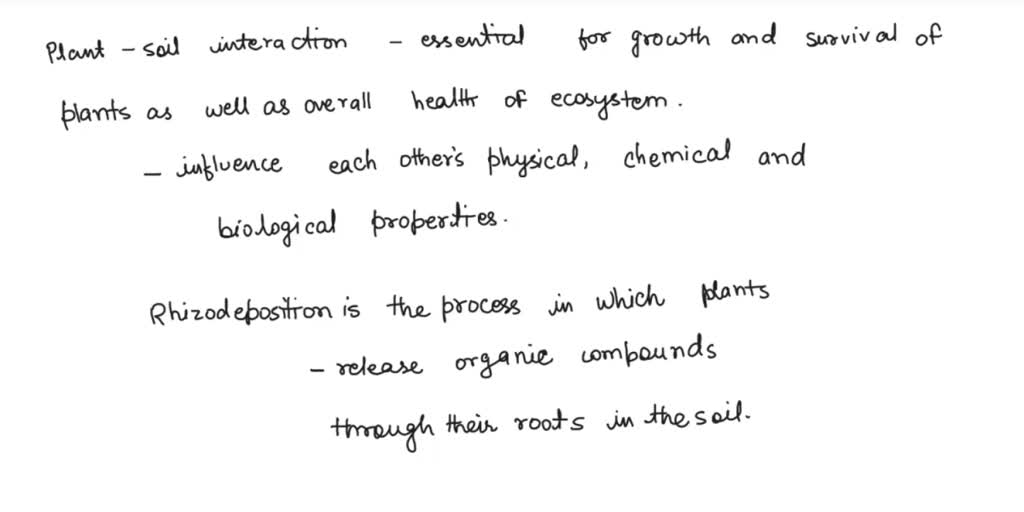 Plant - soil interaction - essential for growth and survival of
plants as well as overall health of ecosystem.
- influence each other's physical, chemical and
biological properties.
Rhizodeposition is the process in which plants
- release organic compounds
through their roots in the soil.